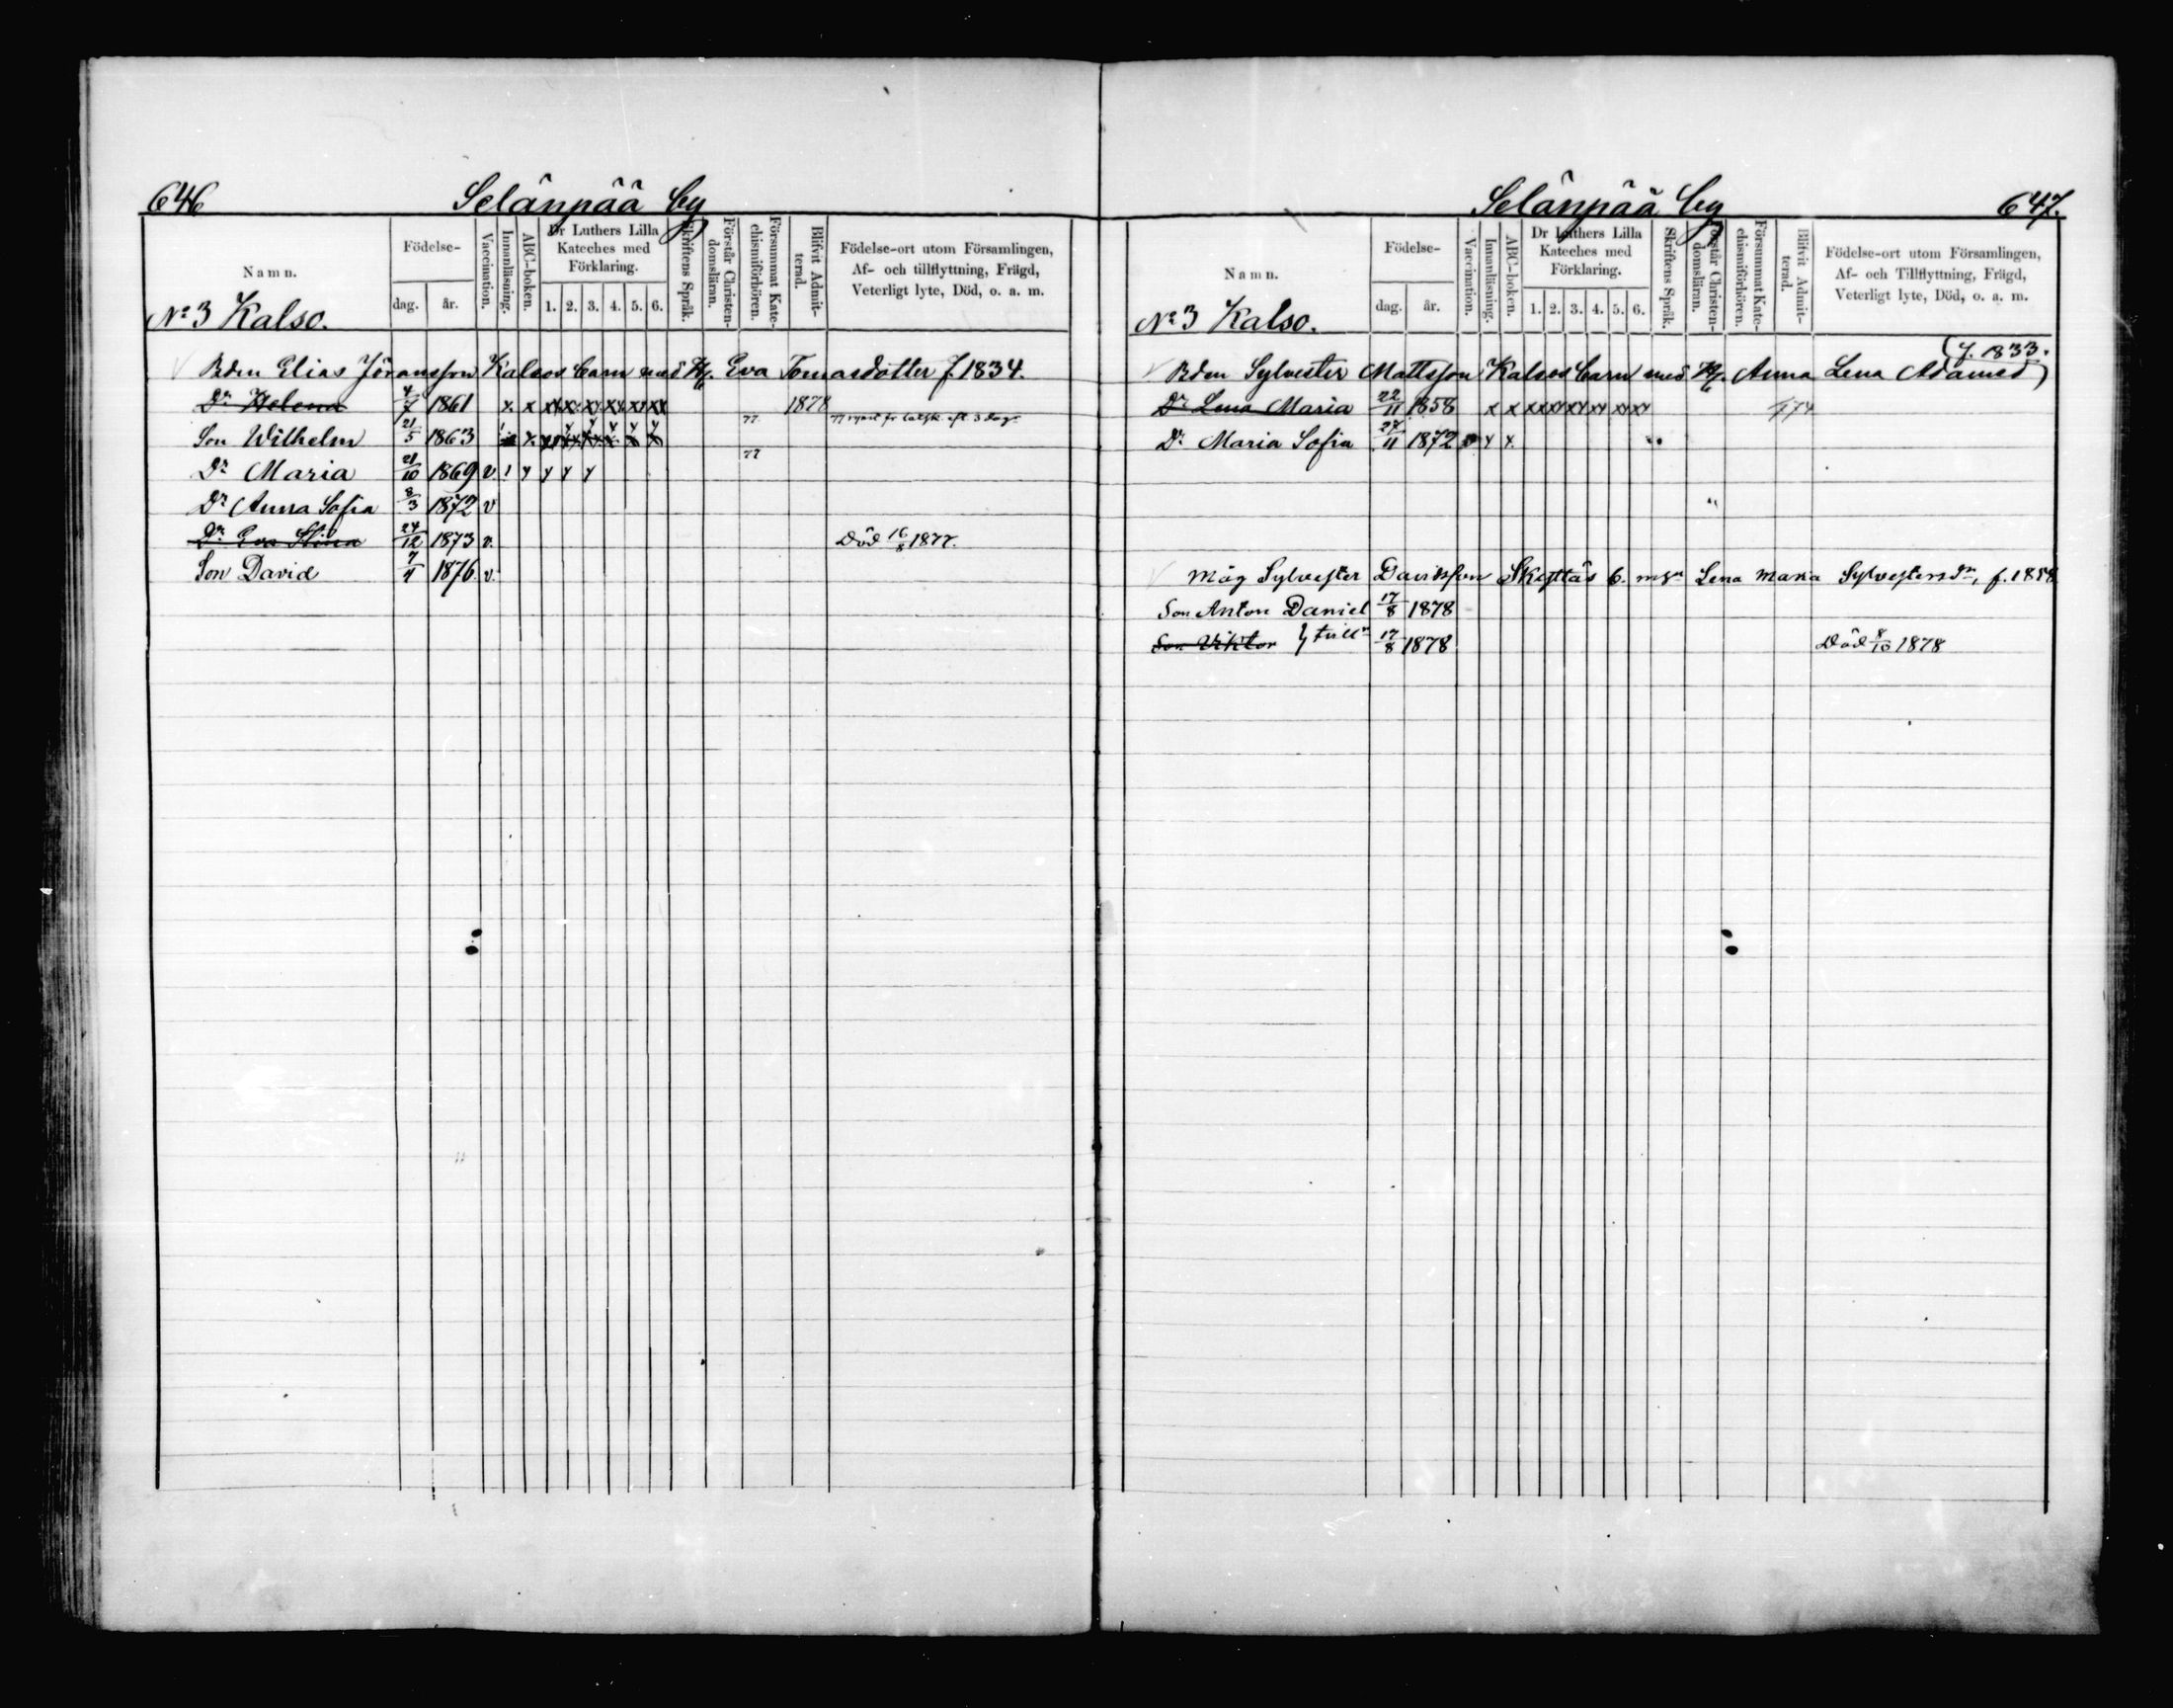 646 Selänpää by
Namn. Födelse- dag. år. Vaccination. Innanläsning. ABC-boken. Dr Luthers Lilla Kateches med Förklaring. 1. 2. 3. 4. 5. 6. Skriftens Språk. Förstår Christendomsläran. Försummat Katechismiförhören. Blifvit Admitterad. Födelse-ort utom Församlingen, Af- och tillflyttning, Frägd, Veterligt lyte, Död, o. a. m.
No 3 Kalso.
Bdrn Elias Jöransson Kalsos barn med H. Eva Tomasdotter f. 1834.
Dr Helena 4/7 1861 x x xx xx xx xx xx xx 1878
77
Son Wilhelm 21/5 1863
77
Dr Maria 21/10 1869 v. 1 y y y y
Dr Anna Sofia 8/3 1872 v
Dr Eva Stina 24/12 1873 v. Död 16/8 1877.
Son David 1876. v.
Selänpää by 647.
Namn. Födelse- dag. år. Vaccination. Innanläsning. ABC-boken. Dr Luthers Lilla Kateches med Förklaring. 1. 2. 3. 4. 5. 6. Skriftens Språk. Förstår Christendomsläran. Försummat Katechismiförhören. Blifvit Admitterad. Födelse-ort utom Församlingen, Af- och Tillflyttning, Frägd, Veterligt lyte, Död, o. a. m.
No 3 Kalso.
f. 1833.
Bdrn Sylvester Mattsson Kalsos barn med H. Anna Lena Adamsd
Dr Lena Maria 22/11 1858 x x xx xx xx xx xx xx
Dr Maria Sofia 27/11 1872 v y y
Måg Sylvester Davidsson Skyttäs b. Lena Maria Sylvestersdr, f. 1858
Son Anton Daniel 17/8 1878
Son Viktor } tvill 17/8 1878 Död 8/10 1878